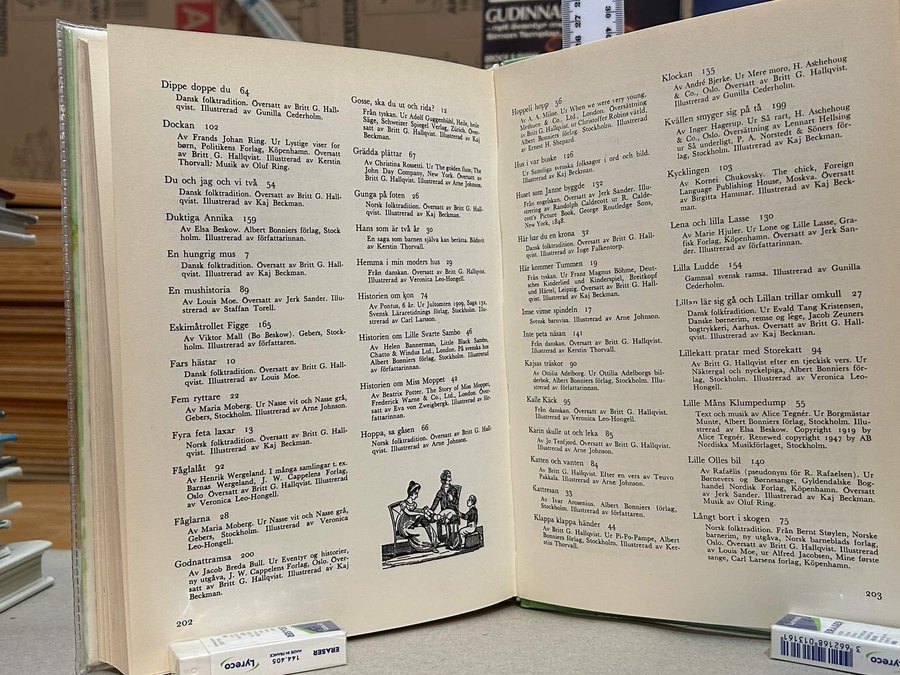 GUDINNA
Dippe doppe du 64
Dansk folktradition. Översatt av Britt G. Hall-
qvist. Illustrerad av Gunilla Cederholm.
Dockan 102
Av Frands Johan Ring. Ur Lystige viser for
børn, Politikens Forlag, Köpenhamn. Översatt
av Britt G. Hallqvist. Illustrerad av Kerstin
Thorvall: Musik av Oluf Ring.
Du och jag och vi två 54
Dansk folktradition. Översatt av Britt G. Hall-
qvist. Illustrerad av Kaj Beckman.
Duktiga Annika 159
Av Elsa Beskow. Albert Bonniers förlag, Stock
holm. Illustrerad av författarinnan.
En hungrig mus 7
Dansk folktradition. Översatt av Britt G. Hall-
qvist. Illustrerad av Kaj Beckman.
En mushistoria 89
Av Louis Moe. Översatt av Jerk Sander. Illu-
strerad av Staffan Torell.
Eskimåtrollet Figge 165
Av Viktor Mall (Bo Beskow). Gebers, Stock-
holm. Illustrerad av författaren.
Fars hästar 10
Dansk folktradition. Översatt av Britt G. Hall-
qvist. Illustrerad av Louis Moe.
Fem ryttare 22
Av Maria Moberg. Ur Nasse vit och Nasse grå,
Gebers, Stockholm. Illustrerad av Arne Johnson.
Fyra feta laxar 13
Norsk folktradition. Översatt av Britt G. Hall-
qvist. Illustrerad av Kaj Beckman.
Fåglalåt 92
Av Henrik Wergeland. I många samlingar t. ex.
Barnas Wergeland, J. W. Cappelens Forlag,
Oslo Översatt av Britt G. Hallqvist. Illustrerad
av Veronica Leo-Hongell.
Fåglarna 28
Av Maria Moberg. Ur Nasse vit och Nasse grå,
Gebers, Stockholm. Illustrerad av Veronica
Leo-Hongell.
Godnattramsa 200
Av Jacob Breda Bull. Ur Eventyr og historier,
ny utgåva, J. W. Cappelens Forlag, Oslo. Över-
satt av Britt G. Hallqvist. Illustrerad av Kaj
Beckman.
202
Gosse, ska du ut och rida? 12
Från tyskan. Ur Adolf Guggenbühl, Heile, heile
Säge, Schweizer Spiegel Verlag, Zürich. Över-
satt av Britt G. Hallqvist. Illustrerad av Kaj
Beckman.
Grädda plättar 67
Av Christina Rossetti. Ur The golden flute, The
John Day Company, New York. Översatt av
Britt G. Hallqvist. Illustrerad av Arne Johnson.
Gunga på foten 26
Norsk folktradition. Översatt av Britt G. Hall-
qvist. Illustrerad av Kaj Beckman.
Hans som är två år 30
En saga som barnen själva kan berätta. Bildsvit
av Kerstin Thorvall.
Hemma i min moders hus 29
Från danskan. Översatt av Britt G. Hallqvist.
Illustrerad av Veronica Leo-Hongell.
Historien om kon 74
Av Pontus, 6 år. Ur Jultomten 1909, Saga 132,
Svensk Läraretidnings förlag, Stockholm. Illu-
strerad av Carl Larsson.
Historien om Lille Svarte Sambo 46
Av Helen Bannerman, Little Black Sambo,
Chatto & Windus Ltd., London. På svenska hos
Albert Bonniers förlag, Stockholm. Illustrerad
av författarinnan.
Historien om Miss Moppet 42
Av Beatrix Potter. The Story of Miss Moppet,
Frederick Warne & Co., Ltd., London. Över-
satt av Eva von Zweigbergk. Illustrerad av för-
fattarinnan.
Hoppa, sa gåsen 66
Norsk folktradition. Översatt av Britt G. Hall-
qvist. Illustrerad av Arne Johnson.
Hoppeli hopp 56
Av A. A. Milne. Ur When we were very young,
Methuen & Co., Ltd., London. Översättning
av Britt G. Hallqvist, ur Christoffer Robins värld,
Albert Bonniers förlag. Stockholm. Illustrerad
av Ernest H. Shepard.
Hus i var buske 126
Ur Samtliga svenska folksagor i ord och bild.
Illustrerad av Kaj Beckman.
Huset som Janne byggde 132
Från engelskan. Översatt av Jerk Sander. Illu-
strering av Randolph Caldecott ur R. Calde-
cott's Picture Book, George Routledge Sons,
New York, 1848.
Här har du en krona 32
Dansk folktradition. Översatt av Britt G. Hall-
qvist. Illustrerad av Inge Falkentorp.
Här kommer Tummen 19
Från tyskan. Ur Franz Magnus Böhme, Deut-
sches Kinderlied und Kinderspiel, Breitkopf
und Härtel, Leipzig. Översatt av Britt G. Hall-
qvist. Illustrerad av Kaj Beckman.
Imse vimse spindeln 17
Svensk barnvisa. Illustrerad av Arne Johnson.
Inte peta näsan 141
Från danskan. Översatt av Britt G. Hallqvist.
Illustrerad av Kerstin Thorvall.
Kajsas träskor 90
Av Ottilia Adelborg. Ur Ottilia Adelborgs bil-
derbok, Albert Bonniers förlag, Stockholm. Illu-
strerad av författarinnan.
Kalle Käck 95
Från danskan. Översatt av Britt G. Hallqvist.
Illustrerad av Veronica Leo-Hongell.
Karin skulle ut och leka 85
Av Jo Tenfjord. Översatt av Britt G. Hallqvist.
Illustrerad av Kaj Beckman.
Katten och vanten 84
Av Britt G. Hallqvist. Efter en vers av Teuvo
Pakkala. Illustrerad av Arne Johnson.
Kattresan 33
Av Ivar Arosenius. Albert Bonniers förlag,
Stockholm. Illustrerad av författaren.
Klappa klappa händer 44
Av Britt G. Hallqvist. Ur Pi-Po-Pampe, Albert
Bonniers förlag, Stockholm. Illustrerad av Ker-
stin Thorvall.
Klockan 155
Av André Bjerke. Ur Mere moro, H. Aschehoug
& Co., Oslo. Översatt av Britt G. Hallqvist.
Illustrerad av Gunilla Cederholm.
Kvällen smyger sig på tå 199
Av Inger Hagerup. Ur Så rart, H. Aschehoug
& Co., Oslo. Översättning av Lennart Hellsing
ur Så underligt, P. A. Norstedt & Söners för-
lag, Stockholm. Illustrerad av Kaj Beckman.
Kycklingen 103
Av Kornei Chukovsky. The chick, Foreign
Language Publishing House, Moskva. Översatt
av Birgitta Hammar. Illustrerad av Kaj Beck-
man.
Lena och lilla Lasse 130
Av Marie Hjuler. Ur Lone og Lille Lasse, Gra-
fisk Forlag, Köpenhamn. Översatt av Jerk San-
der. Illustrerad av författarinnan.
Lilla Ludde 154
Gammal svensk ramsa. Illustrerad av Gunilla
Cederholm.
Lillan lär sig gå och Lillan trillar omkull 27
Dansk folktradition. Ur Evald Tang Kristensen,
Danske børnerim, remse og lege, Jacob Zeuners
bogtrykkeri, Aarhus. Översatt av Britt G. Hall-
qvist. Illustrerad av Veronica Leo-Hongell.
Lillekatt pratar med Storekatt 94
Av Britt G. Hallqvist efter en tjeckisk vers. Ur
Näktergal och nyckelpiga, Albert Bonniers för-
lag, Stockholm. Illustrerad av Veronica Leo-
Hongell.
Lille Måns Klumpedump 55
Text och musik av Alice Tegnér. Ur Borgmästar
Munte, Albert Bonniers förlag, Stockholm. Illu-
strerad av Elsa Beskow. Copyright 1919 by
Alice Tegnér. Renewed copyright 1947 by AB
Nordiska Musikförlaget, Stockholm.
Lille Olles bil 140
Av Rafaëlis (pseudonym för R. Rafaelsen). Ur
Børnevers og Børnesange, Gyldendalske Bog-
handel Nordisk Forlag, Köpenhamn. Översatt
av Jerk Sander. Illustrerad av Kaj Beckman.
Musik av Oluf Ring.
Långt bort i skogen 75
Norsk folktradition. Från Bernt Støylen, Norske
barnerim, ny utgåva, Norsk barneblads forlag,
Oslo. Översatt av Britt G. Hallqvist. Illustrerad
av Louis Moe, ur Alfred Jacobsen, Mine första
sange, Carl Larsens forlag, Köpenhamn.
203
Lyreco
144.405
MADE IN FRANCE
ERASER
ERASER
3 662168 013161
Lyreco